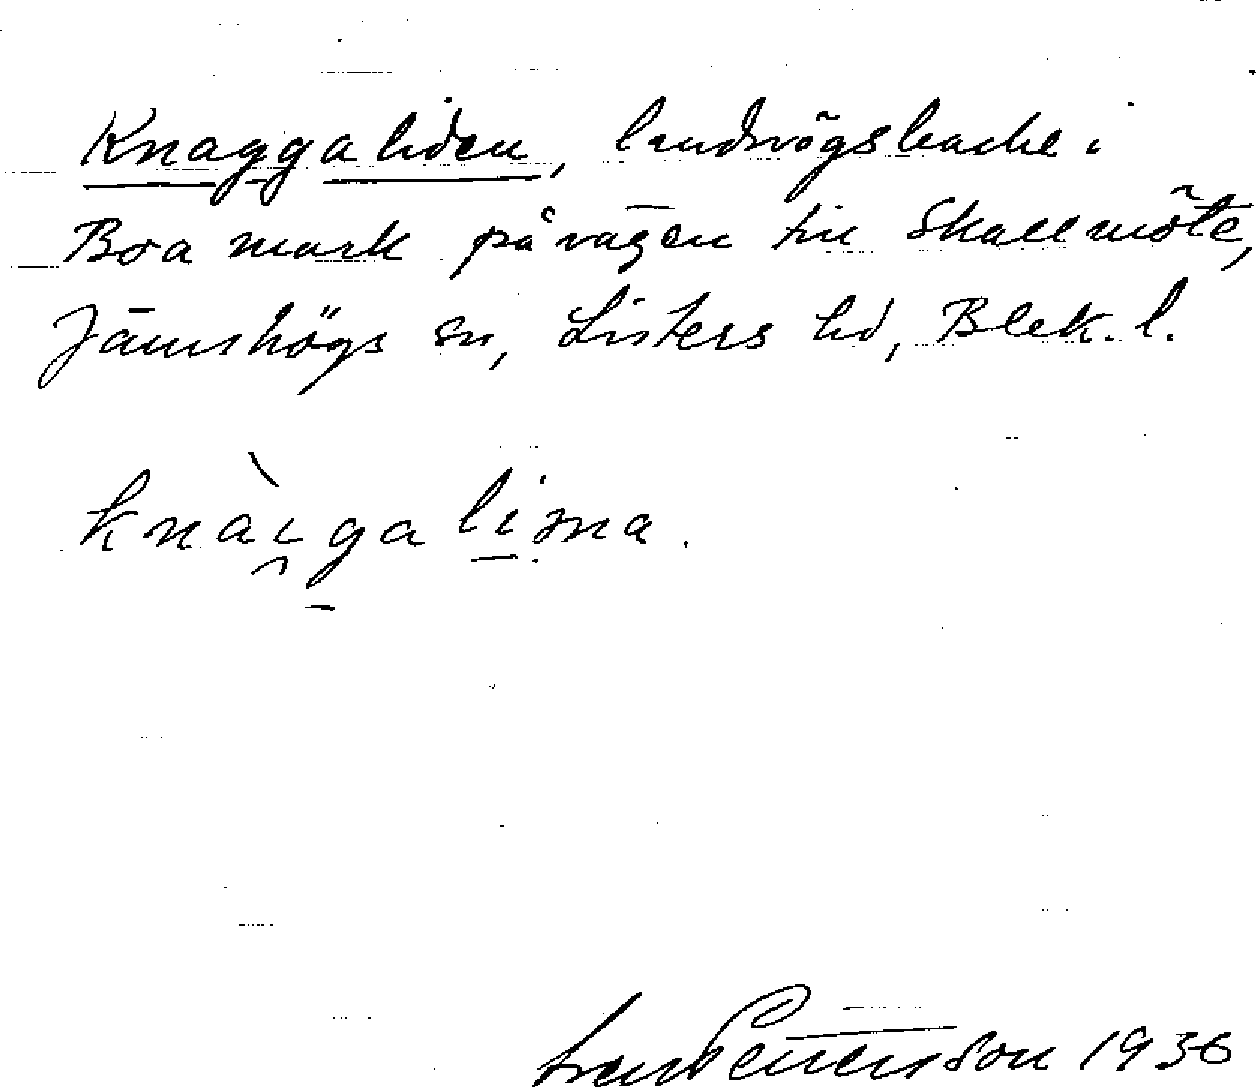 Knaggaliden, landsvägsbacke i
Boa mark på vägen till Skallmöte,
Jämshögs sn, Listers hd, Blek. l.
knàɩgalina.
Pettersson 1936